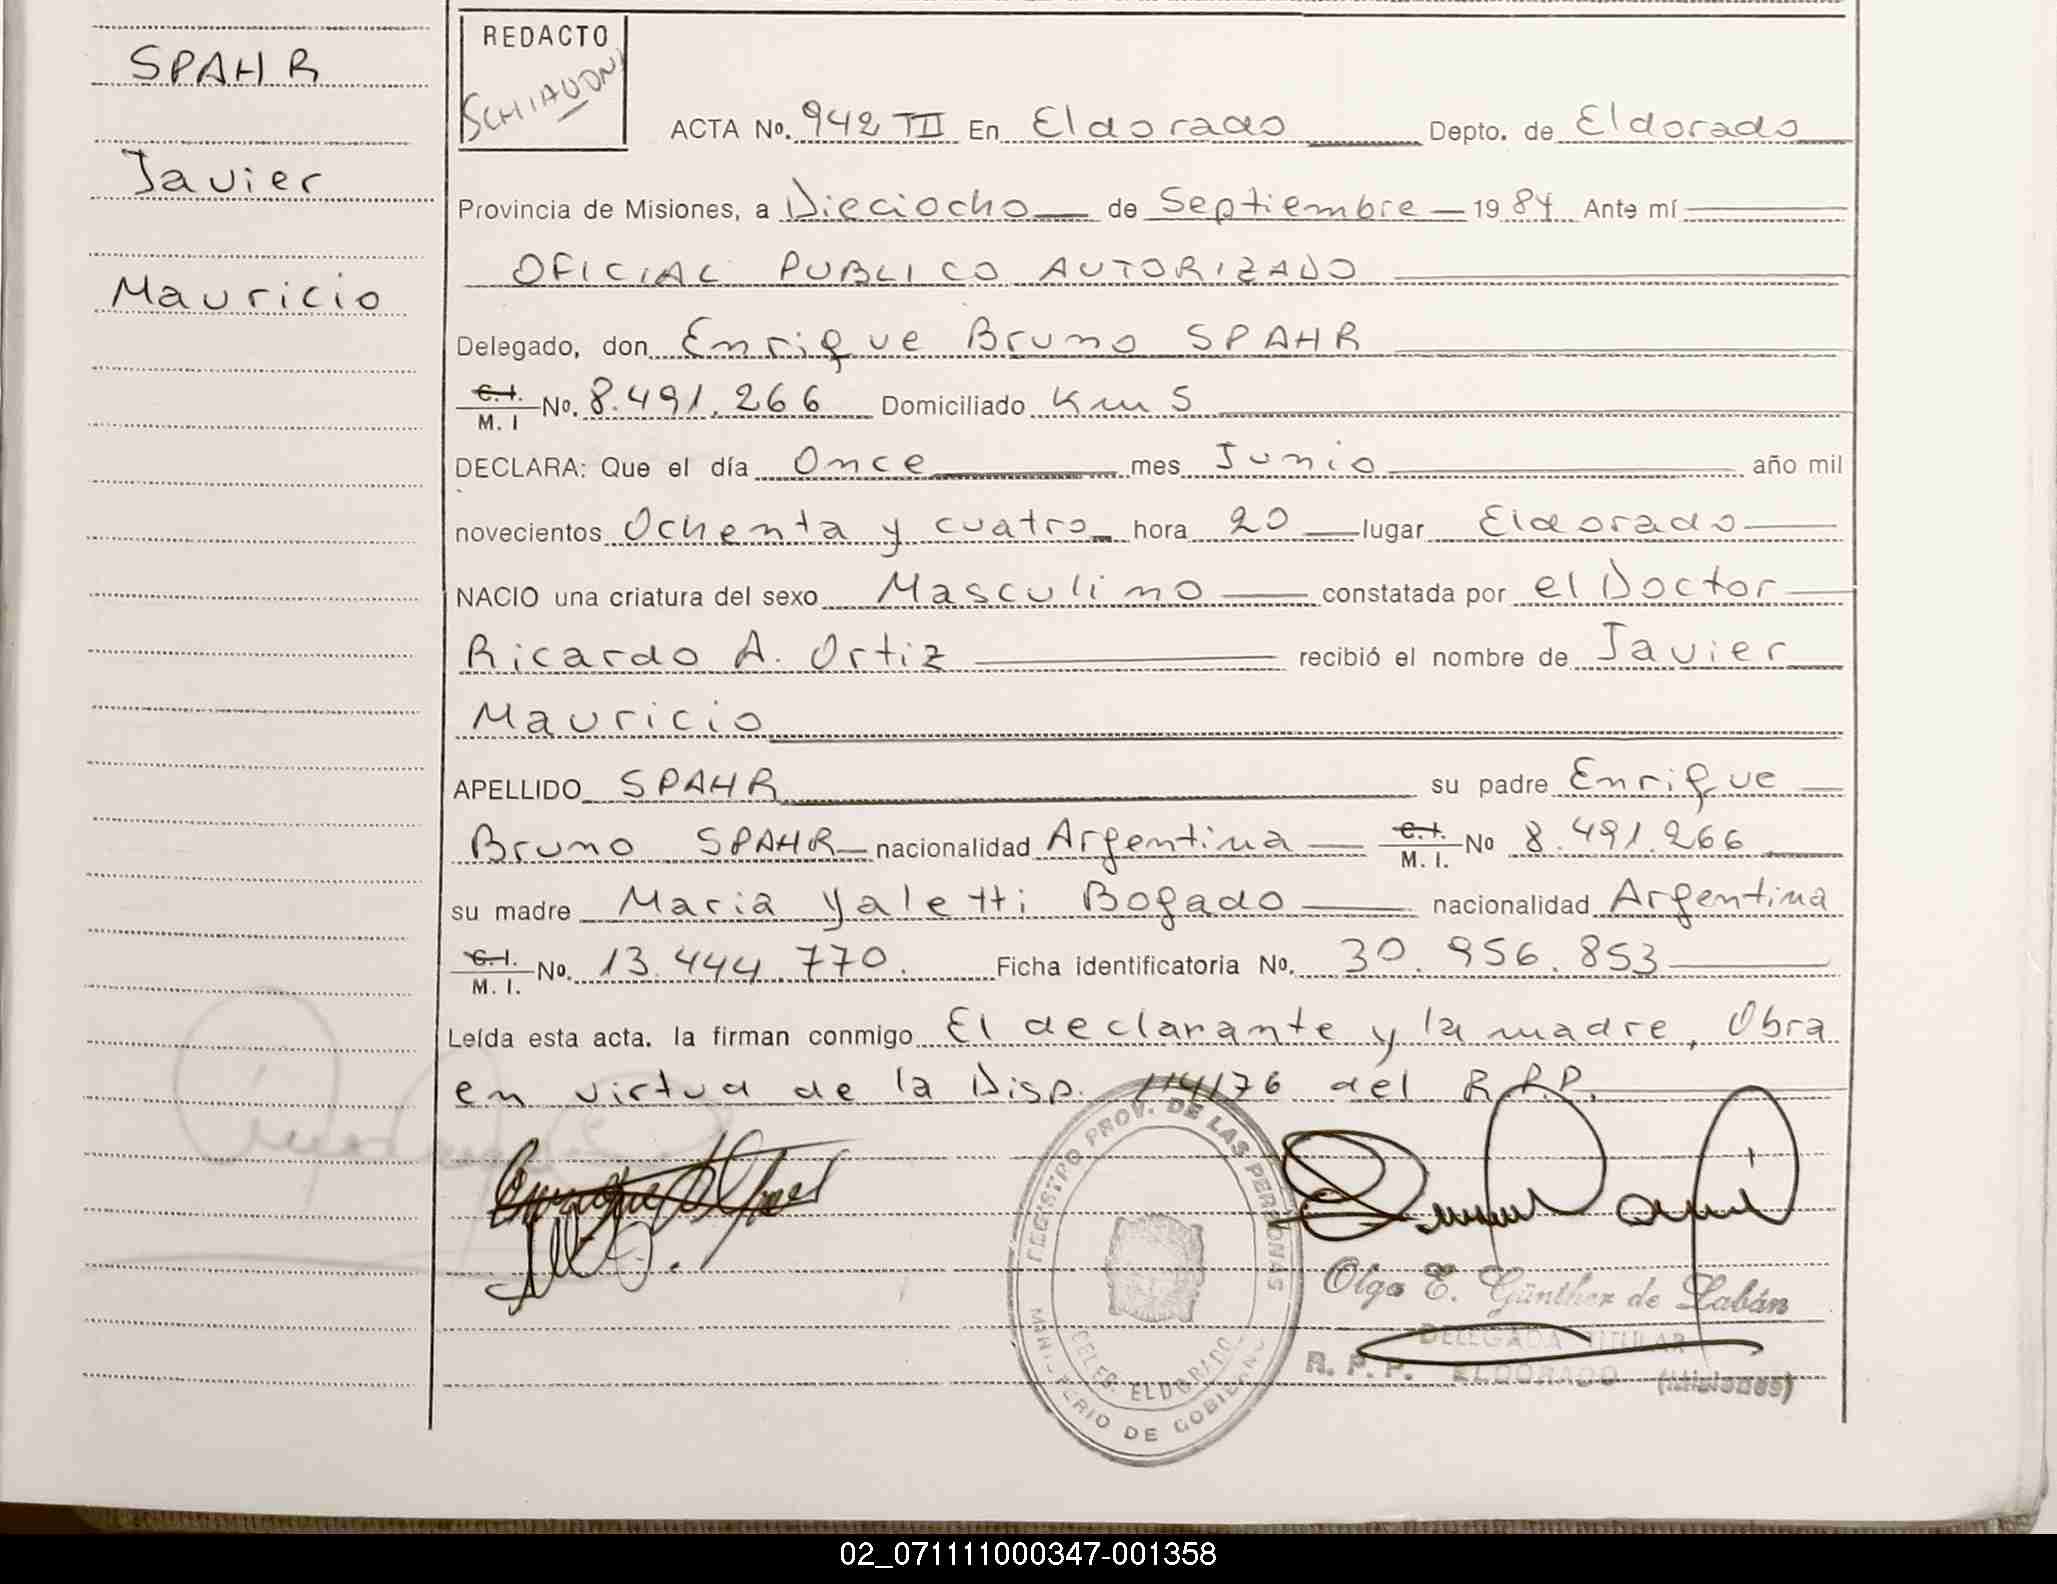 SPAHR
Javier
Mauricio
REDACTO
SCHIAVONI
ACTA No. 942 TII En Eldorado Depto. de Eldorado
Provincia de Misiones, a Dieciocho de Septiembre 1984 Ante mí
OFICIAL PUBLICO AUTORIZADO
Delegado, don Enrique Bruno SPAHR
C.I.
M. I No. 8.491.266 Domiciliado Km 5
DECLARA: Que el día Once mes Junio año mil
novecientos Ochenta y cuatro hora 20 lugar Eldorado
NACIO una criatura del sexo Masculino constatada por el Doctor
Ricardo A. Ortiz recibió el nombre de Javier
Mauricio
APELLIDO SPAHR su padre Enrique
Bruno SPAHR nacionalidad Argentina C.I. M. I. No 8.491.266
su madre Maria Yaletti Bogado nacionalidad Argentina
C.I.
M. I. No. 13.444.770. Ficha identificatoria No. 30.956.853
Leída esta acta. la firman conmigo El declarante y la madre, Obra
en virtud de la Disp. 114/76 del R.P.P.
REGISTRO PROV. DE LAS PERSONAS
MINISTERIO DE GOBIERNO
DELEG. ELDORADO
Olga E. Günther de Labán
DELEGADA TITULAR
R. P. P. ELDORADO (Misiones)
02_071111000347-001358